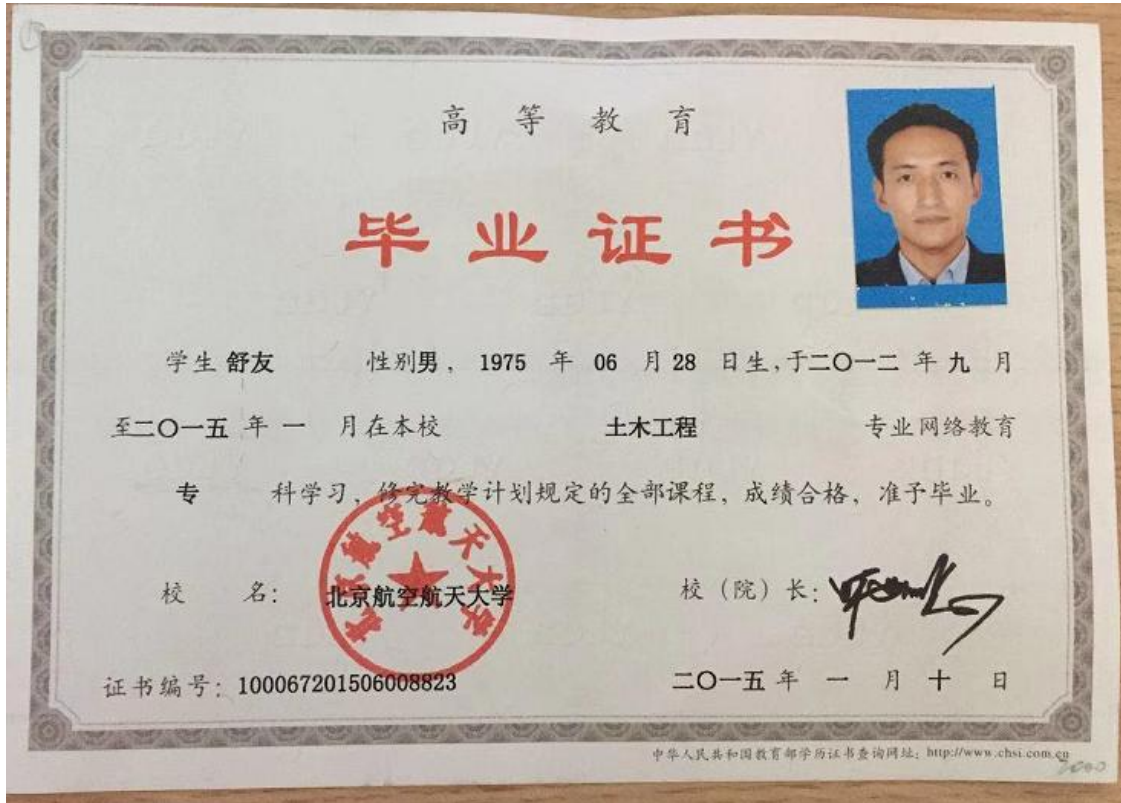 高等教育
毕业证书
学生 舒友 性别男，1975 年 06 月 28 日生，于二〇一二 年 九 月
至二〇一五 年 一 月在本校 土木工程 专业网络教育
专 科学习，修完教学计划规定的全部课程，成绩合格，准予毕业。
北京航空航天大学
校 名： 北京航空航天大学 校（院）长：
证书编号：100067201506008823 二〇一五 年 一 月 十 日
中华人民共和国教育部学历证书查询网址：http://www.chsi.com.cn
2000